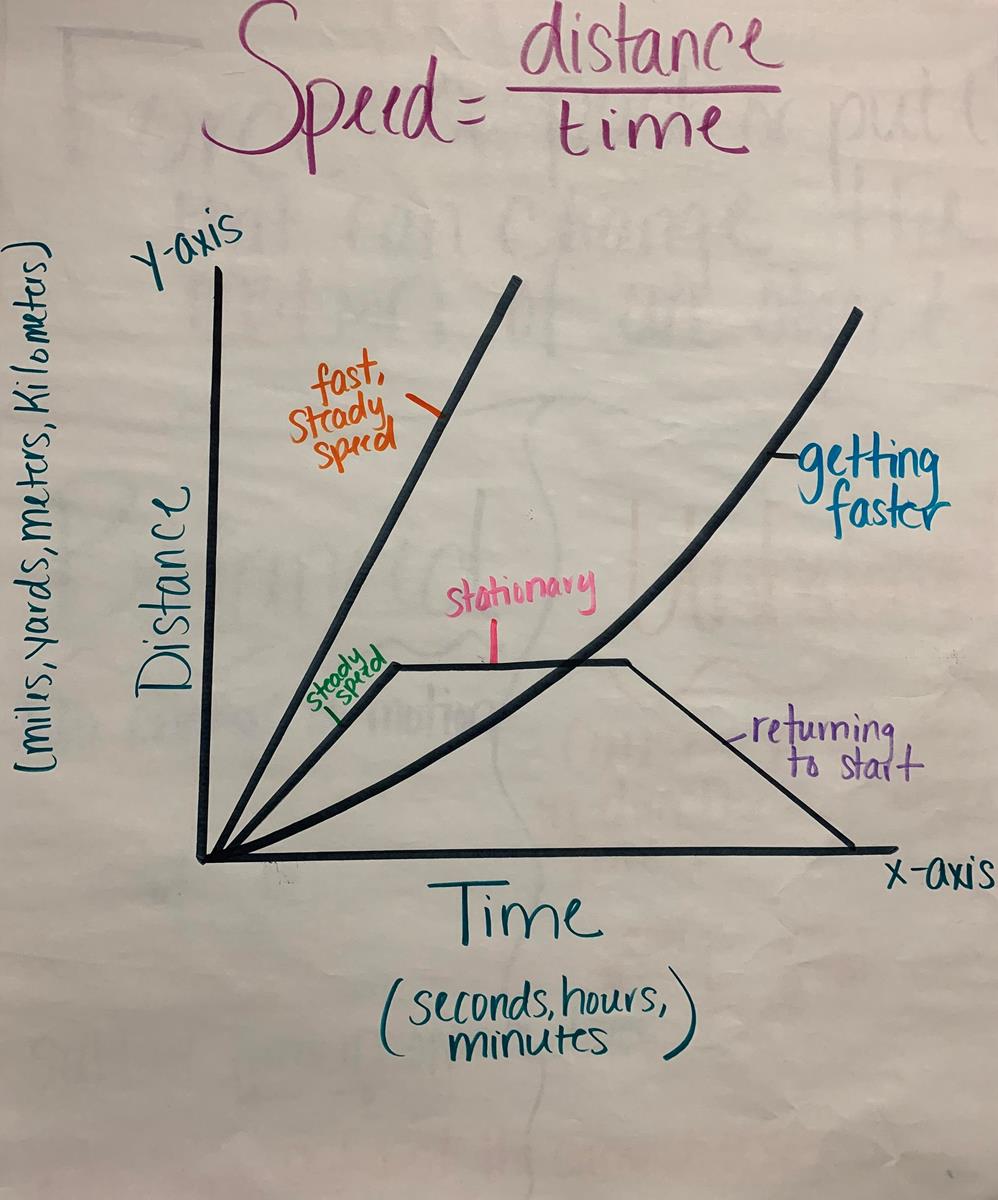 Speed = distance
time
Y-axis
(miles, yards, meters, Kilometers)
Distance
fast,
steady
speed
getting
faster
stationary
steady
speed
returning
to start
x-axis
Time
(seconds, hours,
minutes)